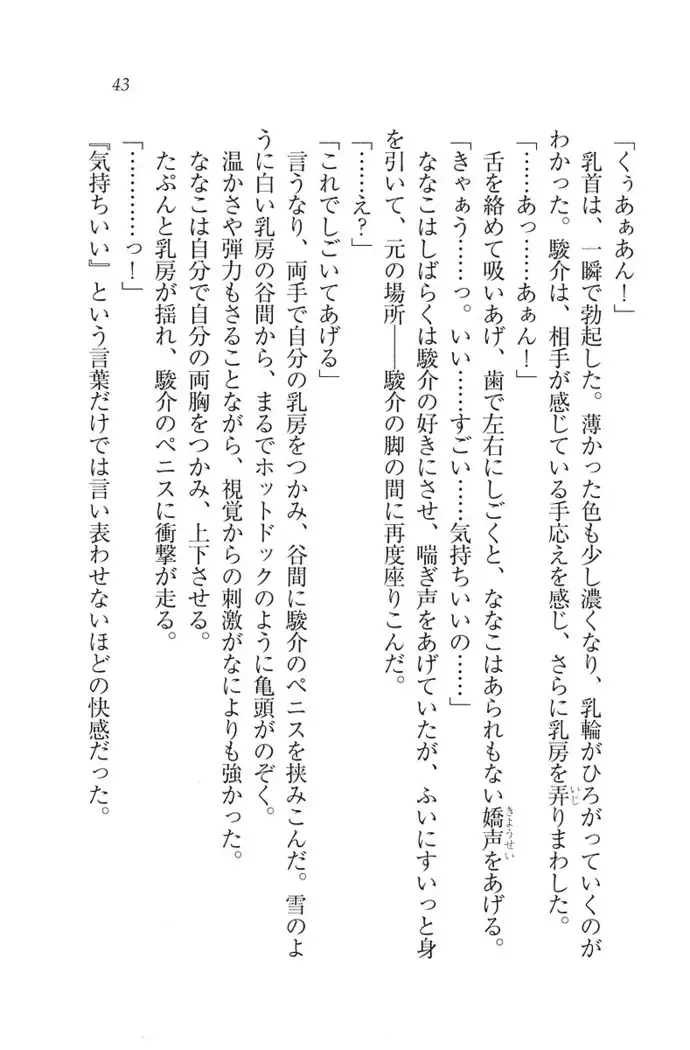 43
「くぅあぁあん！」
乳首は、一瞬で勃起した。薄かった色も少し濃くなり、乳輪がひろがっていくのが
わかった。駿介は、相手が感じている手応えを感じ、さらに乳房を弄りまわした。
「……あっ……あぁん！」
舌を絡めて吸いあげ、歯で左右にしごくと、ななこはあられもない嬌声をあげる。
「きゃぁう……っ。いい……すごい……気持ちいいの……」
ななこはしばらくは駿介の好きにさせ、喘ぎ声をあげていたが、ふいにすいっと身
を引いて、元の場所――駿介の脚の間に再度座りこんだ。
「……え？」
「これでしごいてあげる」
言うなり、両手で自分の乳房をつかみ、谷間に駿介のペニスを挟みこんだ。雪のよ
うに白い乳房の谷間から、まるでホットドックのように亀頭がのぞく。
温かさや弾力もさることながら、視覚からの刺激がなによりも強かった。
ななこは自分で自分の両胸をつかみ、上下させる。
たぷんと乳房が揺れ、駿介のペニスに衝撃が走る。
「…………っ！」
『気持ちいい』という言葉だけでは言い表わせないほどの快感だった。